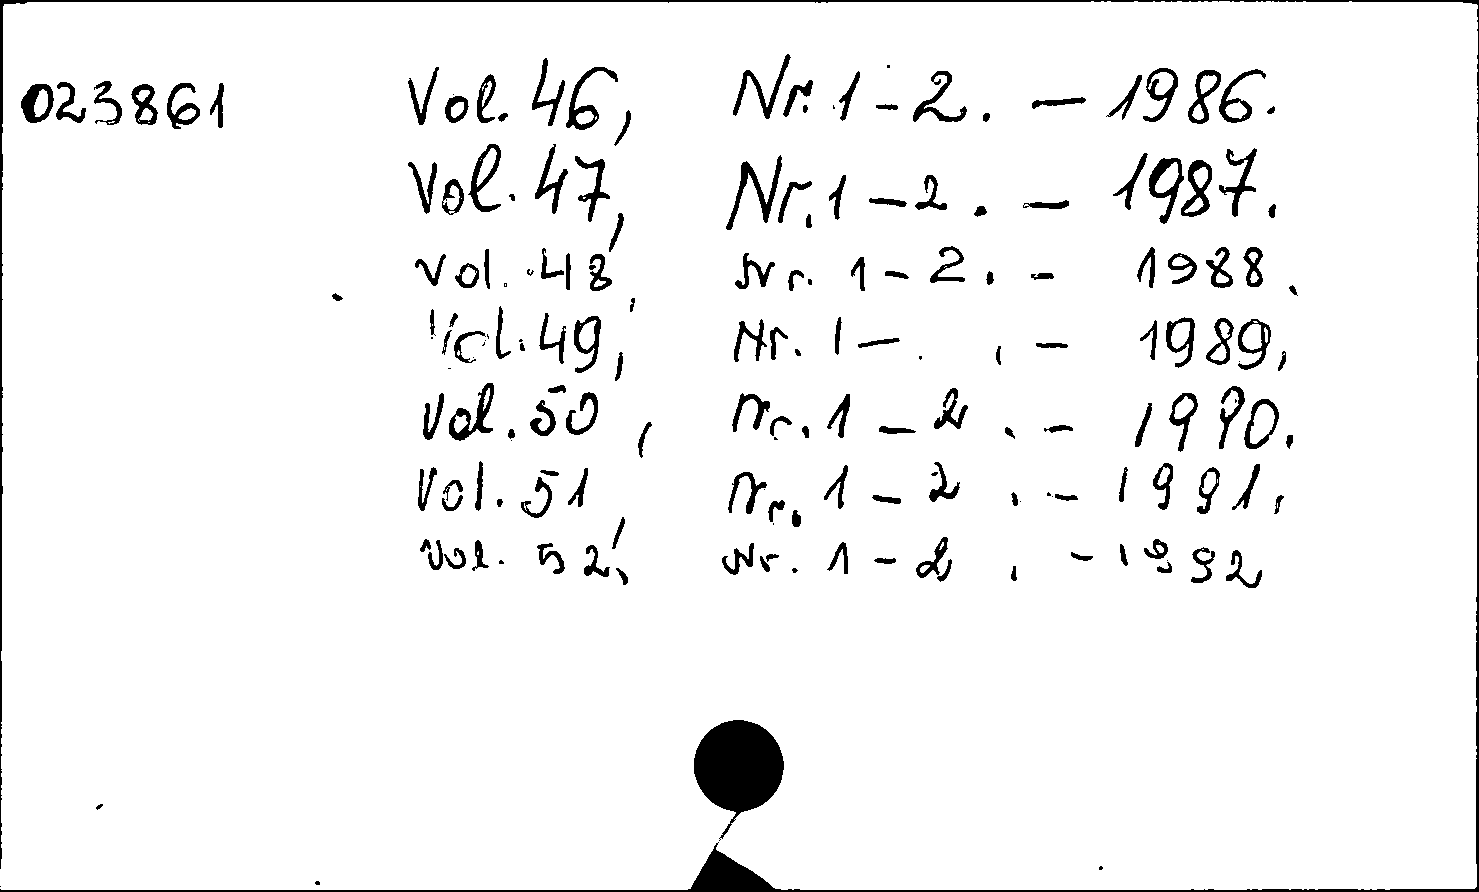 023861 Vol. 46, Nr. 1-2. — 1986.
Vol. 47, Nr. 1-2. — 1987.
Vol. 48, Nr. 1-2. - 1988.
Vol. 49, Nr. 1- . - 1989.
Vol. 50, Nr. 1-2. - 1990.
Vol. 51, Nr. 1-2. - 1991.
Vol. 52, Nr. 1-2. - 1992